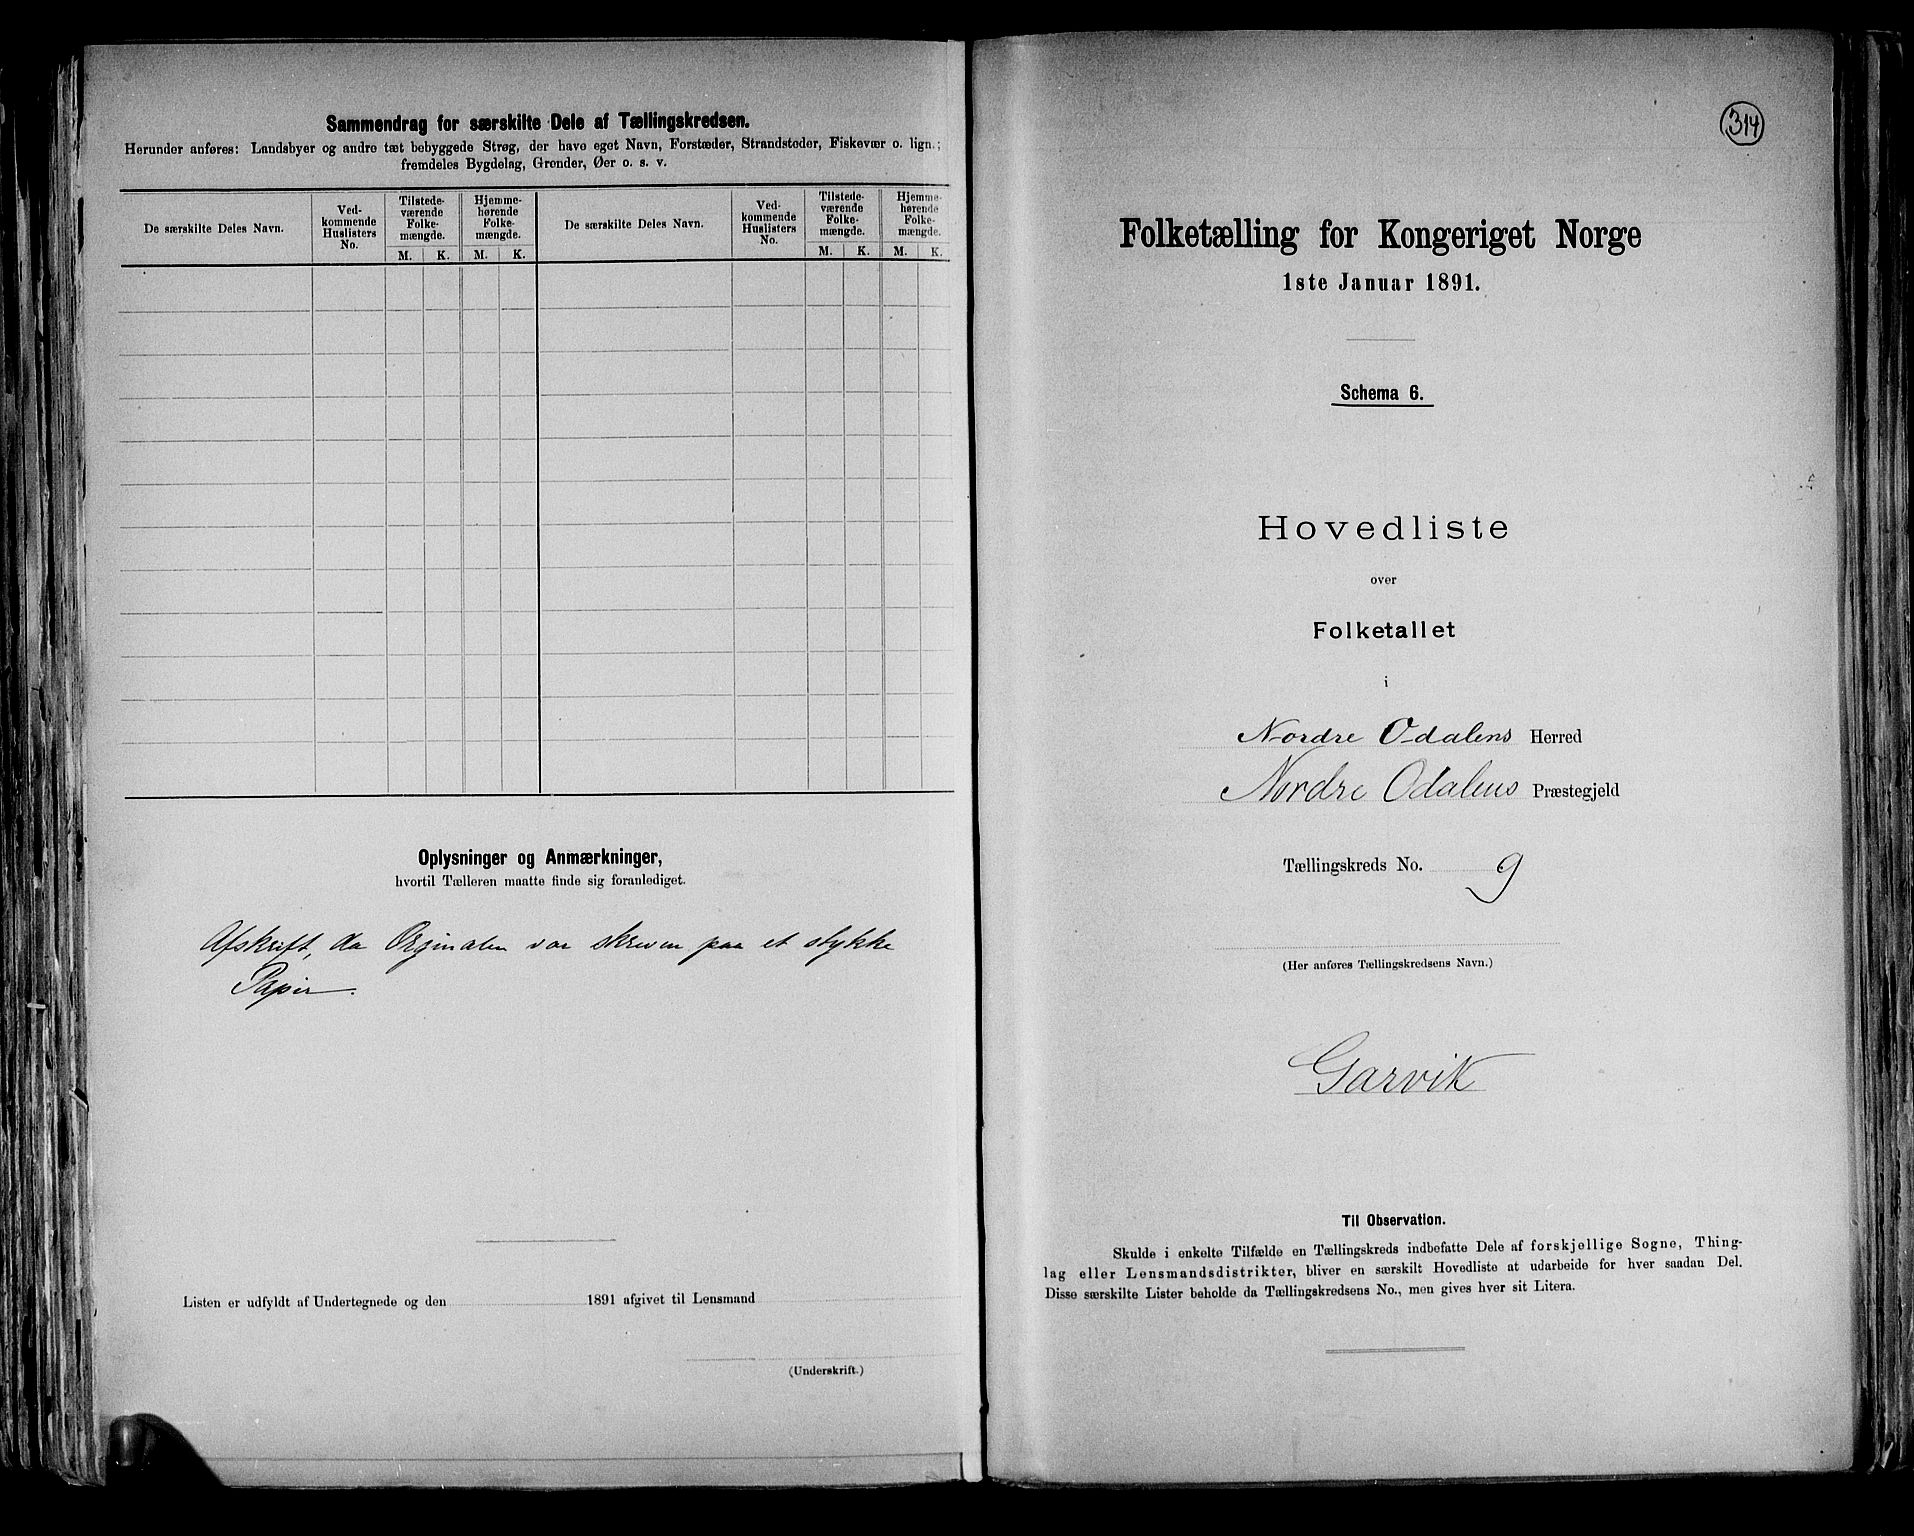 Sammendrag for særskilte Dele af Tællingskredsen.
Herunder anføres: Landsbyer og andre tæt bebyggede Strøg, der have eget Navn, Forstæder, Strandsteder, Fiskevær o. lign.;
fremdeles Bygdelag, Grender, Øer o. s. v.
De særskilte Deles Navn.
Ved-
kommende
Huslisters
No.
Tilstede-
værende
Folke-
mængde.
Hjemme-
hørende
Folke-
mængde.
M. K. M. K.
De særskilte Deles Navn.
Ved-
kommende
Huslisters
No.
Tilstede-
værende
Folke-
mængde.
Hjemme-
hørende
Folke-
mængde.
M. K. M. K.
Oplysninger og Anmærkninger,
hvortil Tælleren maatte finde sig foranlediget.
Afskrift, da Orginalen var skreven paa et stykke
Papir.
Listen er udfyldt af Undertegnede og den 1891 afgivet til Lensmand
(Underskrift.)
314
Folketælling for Kongeriget Norge
1ste Januar 1891.
Schema 6.
Hovedliste
over
Folketallet
i
Nordre Odalens Herred
Nordre Odalens Præstegjeld
Tællingskreds No. 9
(Her anføres Tællingskredsens Navn.)
Garvik
Til Observation.
Skulde i enkelte Tilfælde en Tællingskreds indbefatte Dele af forskjellige Sogne, Thing-
lag eller Lensmandsdistrikter, bliver en særskilt Hovedliste at udarbeide for hver saadan Del.
Disse særskilte Lister beholde da Tællingskredsens No., men gives hver sit Litera.